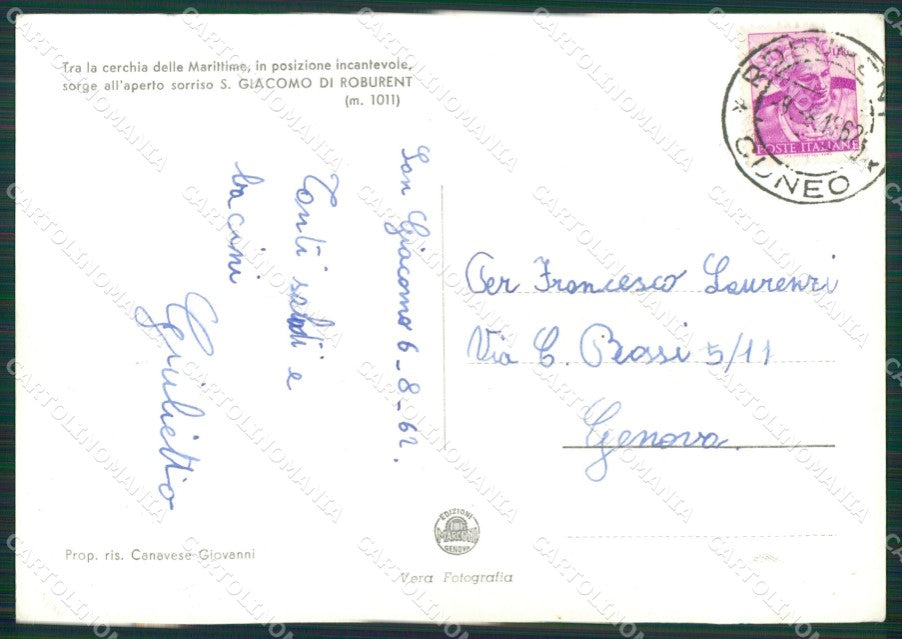 Tra la cerchia delle Marittime, in posizione incantevole,
sorge all'aperto sorriso S. GIACOMO DI ROBURENT
(m. 1011)
San Giacomo 6-8-62.
Tanti saluti e
bacini
Giulietto
ROBURENT
CUNEO
POSTE ITALIANE
Per Francesco Laurenzi
Via C. Rossi 5/11
Genova
EDIZIONI
MARCONI
GENOVA
Vera Fotografia
Prop. ris. Canavese Giovanni
CARTOLINOMANIA